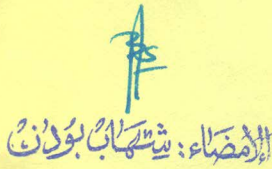 الإمضاء: شهاب بودن